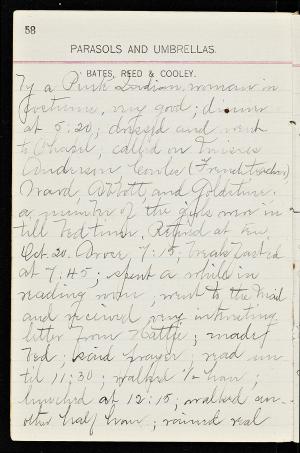 58
PARASOLS AND UMBRELLAS.
BATES, REED & COOLEY.
by a Pink Indian woman in
Costume, very good; dinner
at 5:20; dressed and went
to Chapel; called on Misses
Anderson, (French teacher)
Ward, Abbott, and Goldstine.
a number of the girls were in
till bedtime. Retired at ten.
Oct. 20. Arose 7:15; breakfasted
at 7:45; spent a while in
reading room; went to the mail
and received very interesting
letter from Hattie; made
bed; said prayer; read un-
til 11:30; walked 1/2 hour;
lunched at 12:15; walked an-
other half hour; rained real